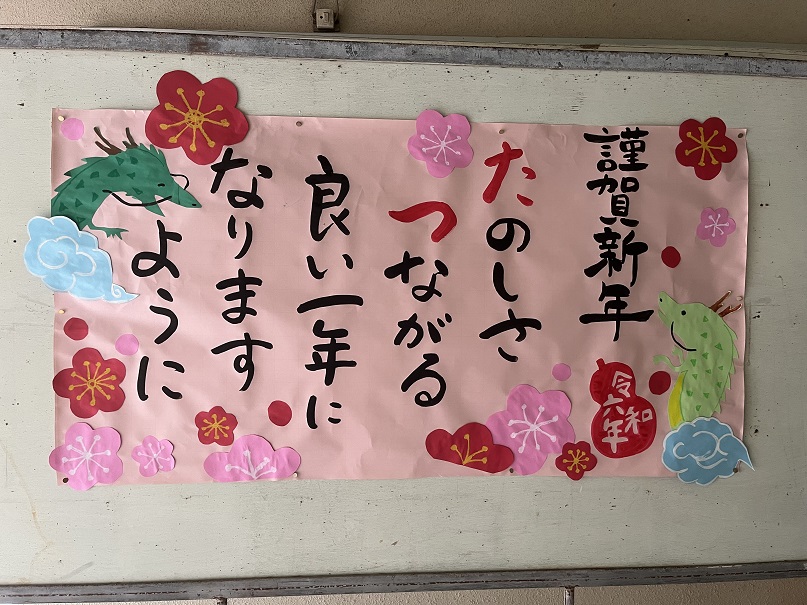 謹賀新年
たのしさ
つながる
良い一年に
なります
ように
令和
六年